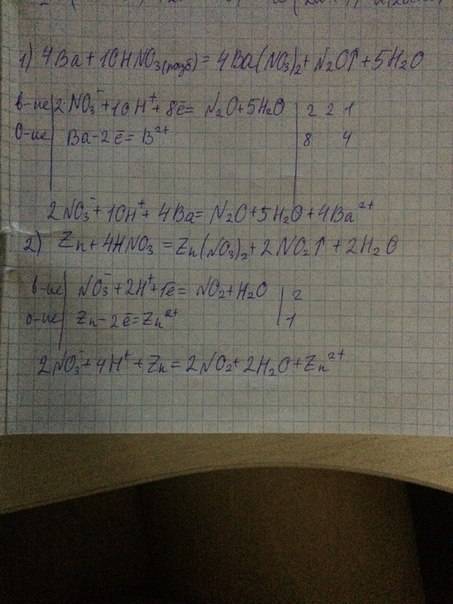 1) 4Ba + 10HNO₃(разб) = 4Ba(NO₃)₂ + N₂O↑ + 5H₂O
в-ие | 2NO₃⁻ + 10H⁺ + 8ē = N₂O + 5H₂O | 2 2 1
о-ие | Ba - 2ē = B²⁺ | 8 4
2NO₃⁻ + 10H⁺ + 4Ba = N₂O + 5H₂O + 4Ba²⁺
2) Zn + 4HNO₃ = Zn(NO₃)₂ + 2NO₂↑ + 2H₂O
в-ие | NO₃⁻ + 2H⁺ + 1ē = NO₂ + H₂O | 2
о-ие | Zn - 2ē = Zn²⁺ | 1
2NO₃⁻ + 4H⁺ + Zn = 2NO₂ + 2H₂O + Zn²⁺